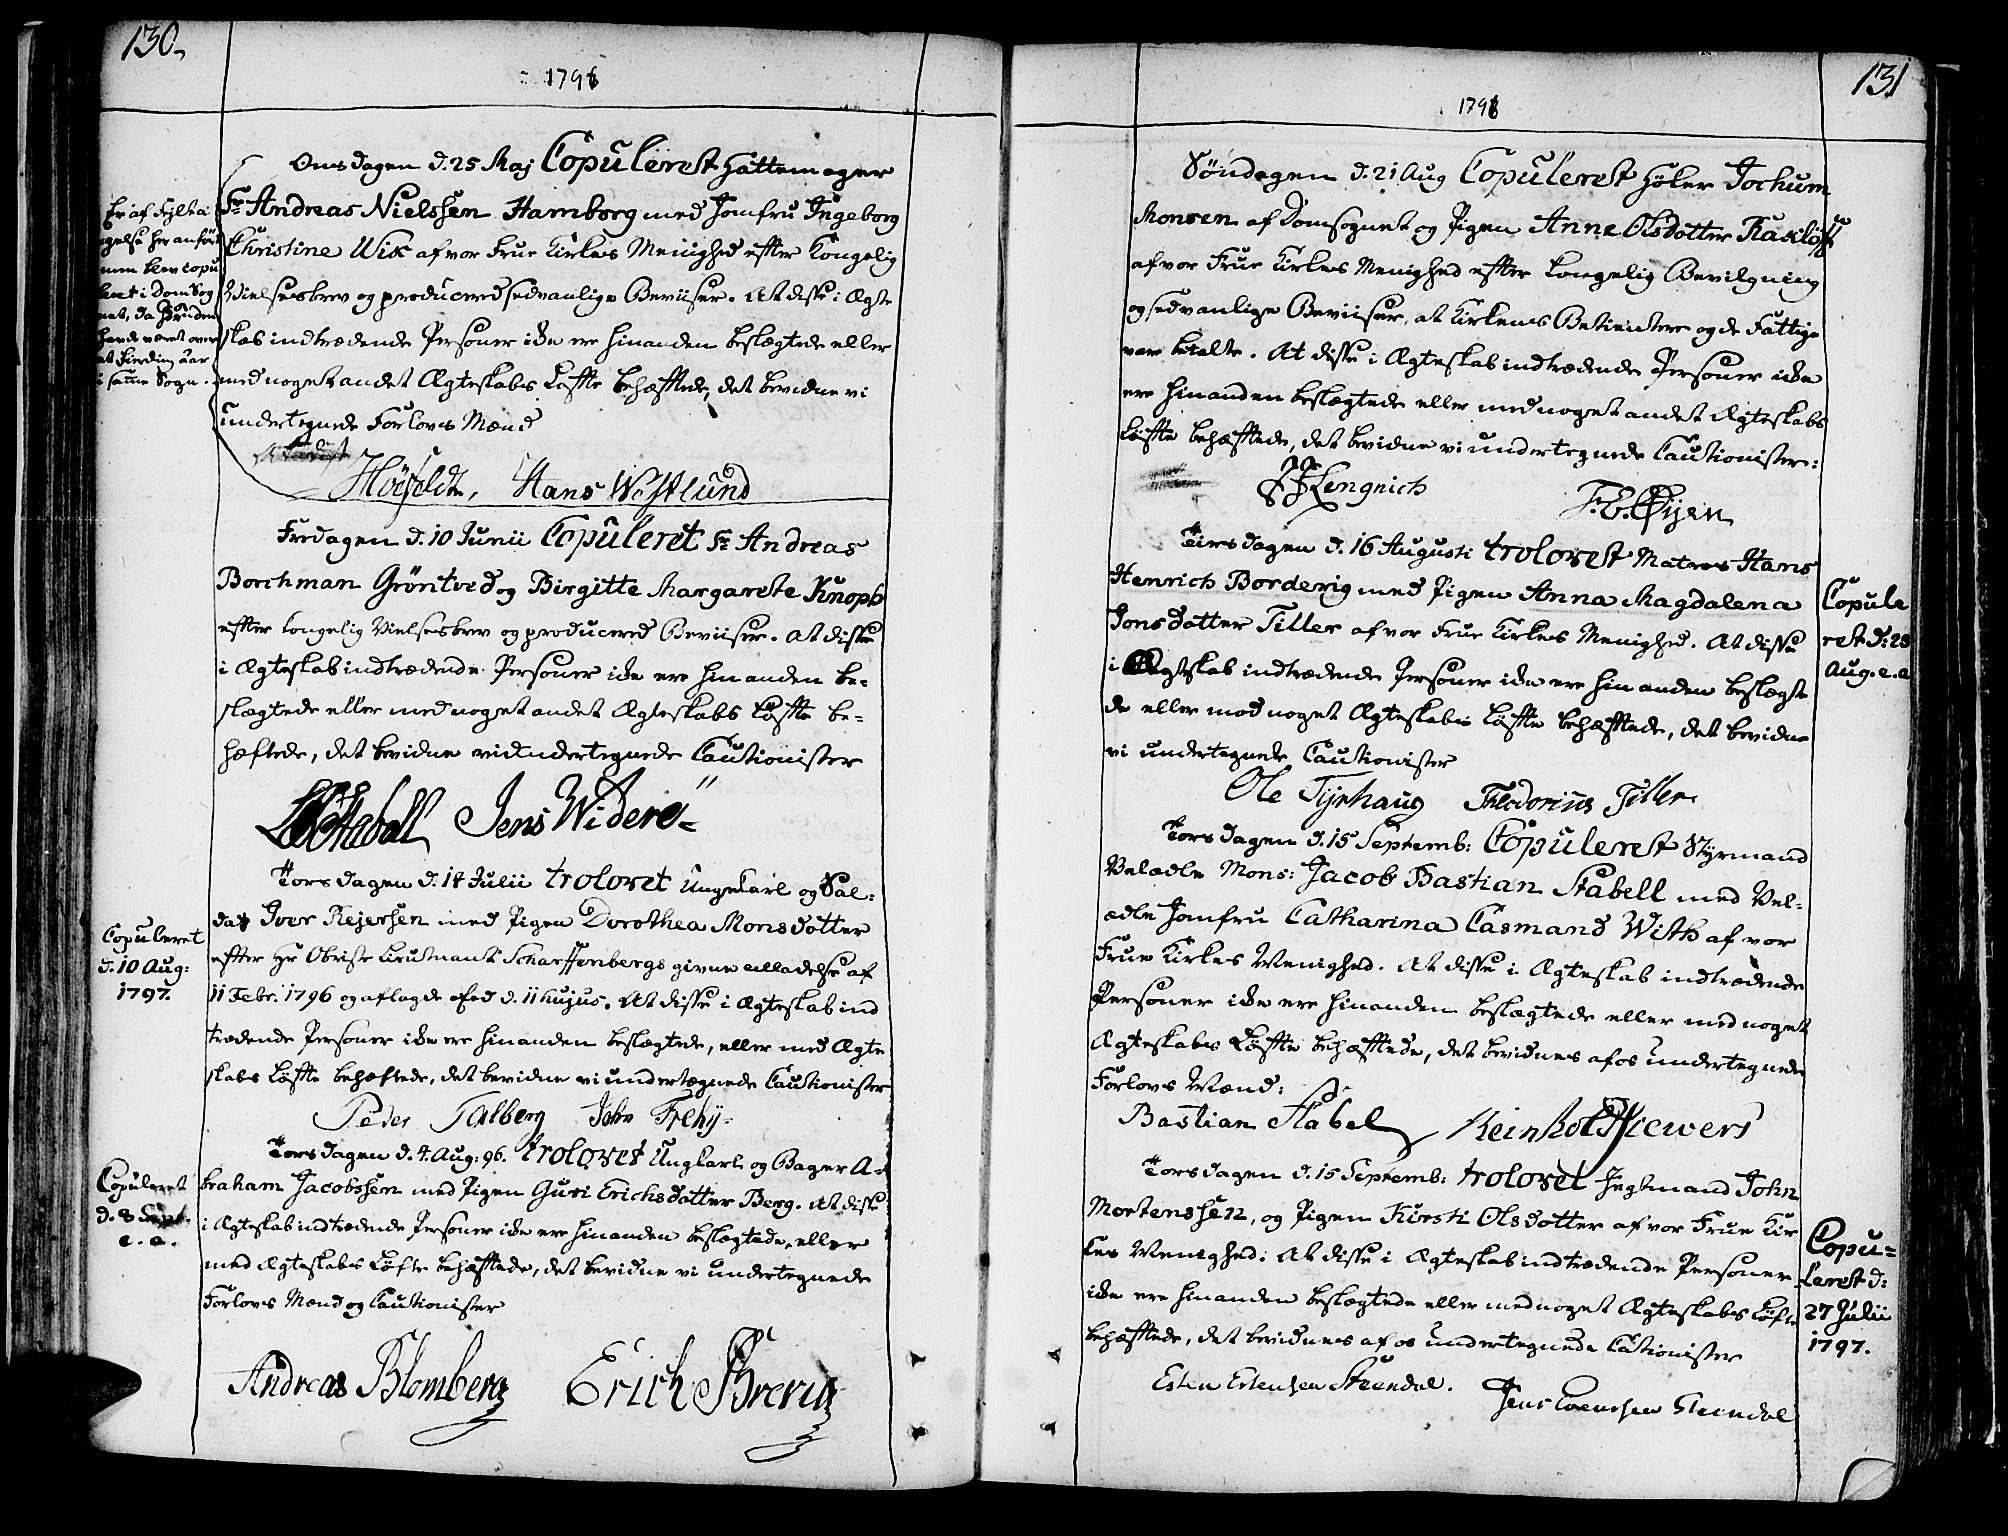 130.
1796
Onsdagen d. 25 Maj Copuleret Hattemager
Sr Andreas Nielssen Hamborg med Jomfru Ingeborg
Christine WiK af vor Frue Kirkes Menighed efter Kongelig
Vielsesbrev og producered sedvanlige Beviiser. At disse i Ægte
skab indtrædende Personer ikke ere hinanden beslægtede eller
med noget andet Ægteskabs Løffte behæfftede, det bevidne vi
undertegnede Forlovs Mænd
Er af
her anført
men blev copu
leret i Dom Sog
net, da Bruden
havde været over
et fierding Aar
i samme Sogn.
Höyfeldt, Hans Westlund
Fredagen d. 10 Junii Copuleret Sr Andreas
Borchman Gröntved og Birgitte Margarete Knoph
efter kongelig Vielsesbrev og producered Beviiser. At disse
i Ægteskab indtrædende Personer ikke ere hinanden be-
slægtede eller med noget andet Ægteskabs Løffte be-
hæftede, det bevidne vi undertegnede Cautionister
Stabell Jens Widerö
Torsdagen d. 14 Julii trolovet Ungkarl og Sol-
dat Iver Rejersen med Pigen Dorothea Monsdotter
efter Hr Obriste Lieutnant Scharffenbergs givne tilladelse af
11 Febr. 1796 og aflagde Eed d. 11 hujus. At disse i Ægteskab ind
trædende Personer ikke ere hinanden beslægtede, eller med Ægte
skabs Løffte behæftede, det bevidne vi undertegnede Cautionister
Copuleret
d. 10 Aug:
1797.
Peder Talberg John Trehy
Torsdagen d. 4. Aug: 96. trolovet Ungkarl og Bager A-
braham Jacobssen med Pigen Guri Erichsdotter Berg. At disse
i Ægteskab indtrædende Personer ikke ere hinanden beslægtede, eller
med Ægteskabs Løfte behæfftede, det bevidne vi undertegnede
Forlovs Mænd og Cautionister
Copuleret
d. 8 Sept.
e. a.
Andreas Blomberg Erich Brerig
131
1796
Søndagen d. 21 Aug Copuleret Høker Jochum
Monsen af Domsognet og Pigen Anne Olsdotter
af vor Frue Kirkes Menighed efter kongelig Bevilgning
og sedvanlige Beviiser, at Kirkens Betientere og de Fattige
vare betalte. At disse i Ægteskab indtrædende Personer ikke
ere hinanden beslægtede eller med noget andet Ægteskabs
Løffte behæfftede, det bevidne vi undertegnede Cautionister:
Lengnich F. E. Øijen
Tirsdagen d. 16 Augusti trolovet Matros Hans
Henrich Borderig med Pigen Anna Magdalena
Jonsdotter Tiller af vor Frue Kirkes Menighed. At disse
i Ægteskab indtrædende Personer ikke ere hinanden beslægte
de eller med noget Ægteskabs Løffte behæfftede, det bevidne
vi undertegnede Cautionister
Copule
ret d: 28
Aug. e. a
Ole Tyrhaug Theodorius Tiller
Torsdagen d. 15 Septemb: Copuleret Styrmand
Velædle Mons: Jacob Bastian Stabell med Vel-
ædle Jomfru Catharina Casmand With af vor
Frue Kirkes Menighed. At disse i Ægteskab indtrædende
Personer ikke ere hinanden beslægtede eller med noget
Ægteskabs Løffte behæfftede, det bevidnes af os undertegnede
Forlovs Mænd:
Bastian Stabel Reinholt Siewers
Torsdagen d. 15 Septemb: trolovet Jegtmand John
Mortenssen, og Pigen Kirsti Olsdotter af vor Frue Kir
kes Menighed: At disse i Ægteskab indtrædende Personer
ikke ere hinanden beslægtede eller med noget Ægteskabs Løfte
behæfftede, det bevidnes af os undertegnede Cationister
Copu-
leret d:
27 Julii
1797.
Esten Estensen Steendal.
Jens Evensen Steendal